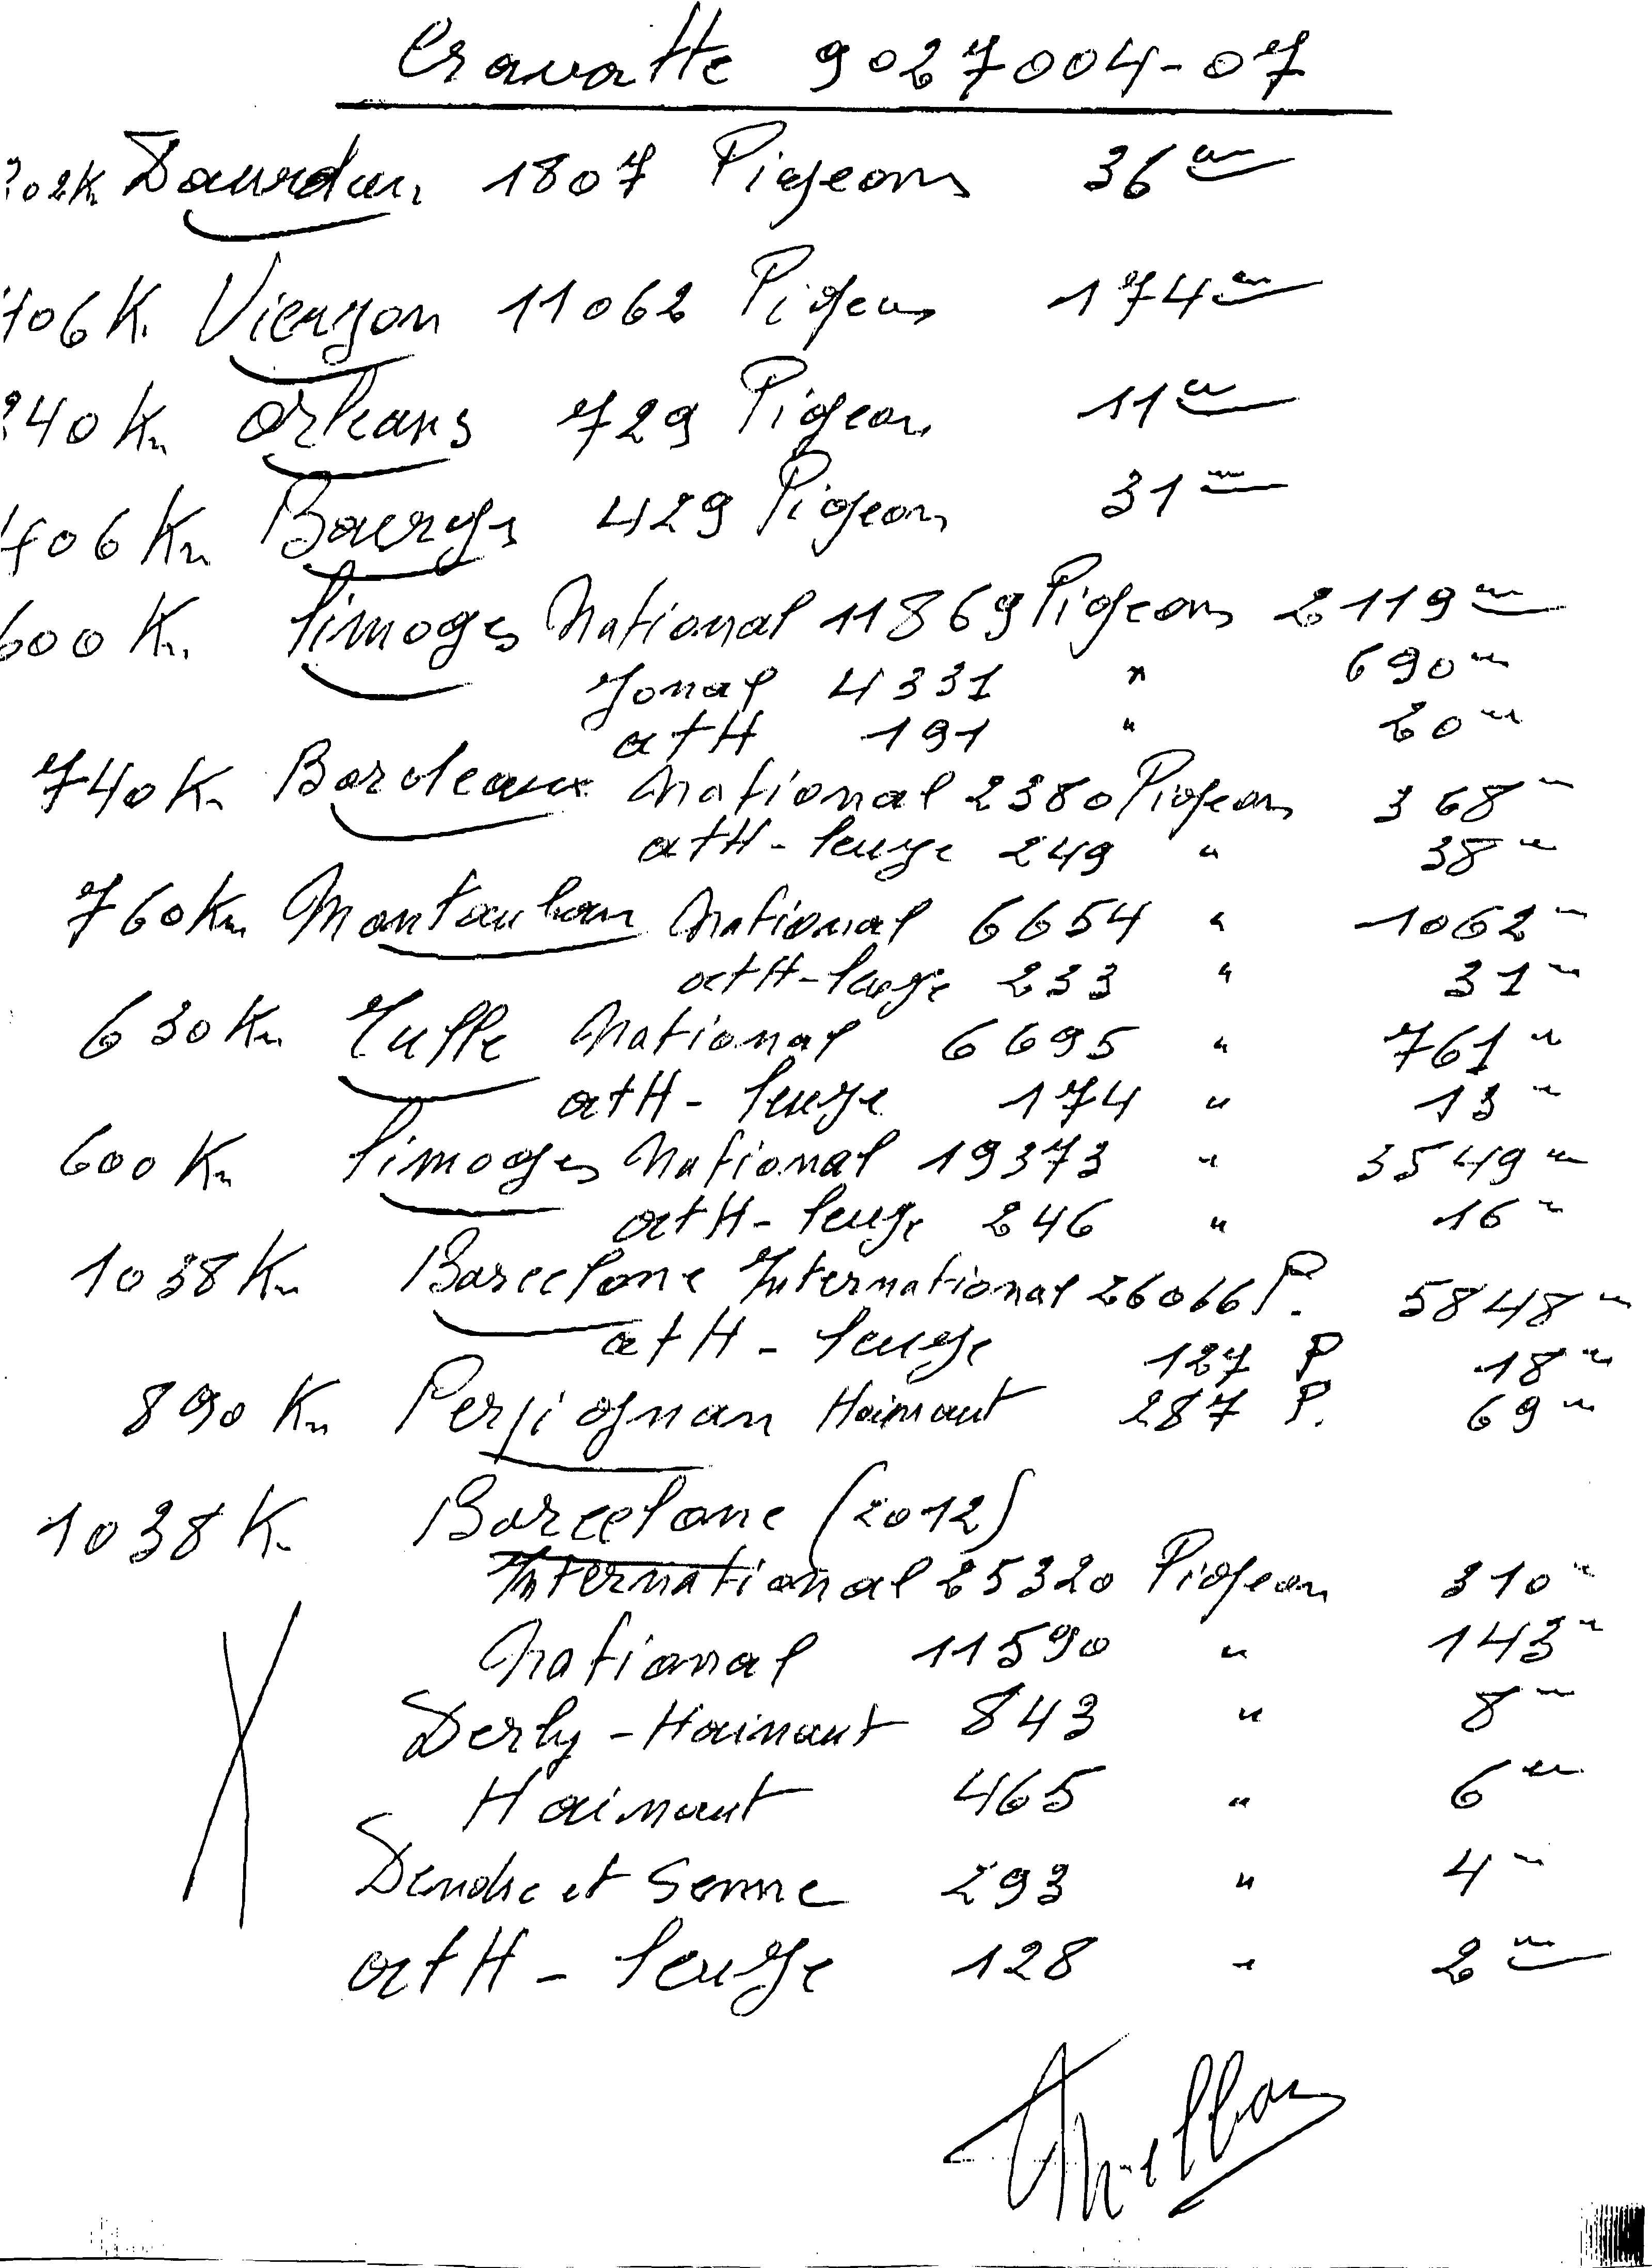 Cravatte 9027004-07
202K Dourdan 1807 Pigeons 36em
406 K. Vierzon 11062 Pigeons 174em
340 Km Orleans 729 Pigeons 11em
406 Km Bourges 429 Pigeons 31em
600 K. Limoges National 11869 Pigeons 2119em
Zonal 4331 " 690em
atH 191 " 20em
740 K. Bordeaux National 2380 Pigeons 368em
atH-leuze 249 " 38em
760 Km Montauban National 6654 " 1062em
atH-leuze 233 " 31em
630 Km Tulle National 6695 " 761em
atH-leuze 174 " 13em
600 Km Limoges National 19373 " 3549em
atH-leuze 246 " 16em
1038 Km Barcelone International 26066 P. 5848em
atH-leuze 127 P 18em
890 Km Perpignan Hainaut 287 P. 69em
1038 K. Barcelone (2012)
International 25320 Pigeons 310em
National 11590 " 143em
Derby-Hainaut 843 " 8em
Hainaut 465 " 6em
Dendre et Senne 293 " 4em
atH-leuze 128 " 2em